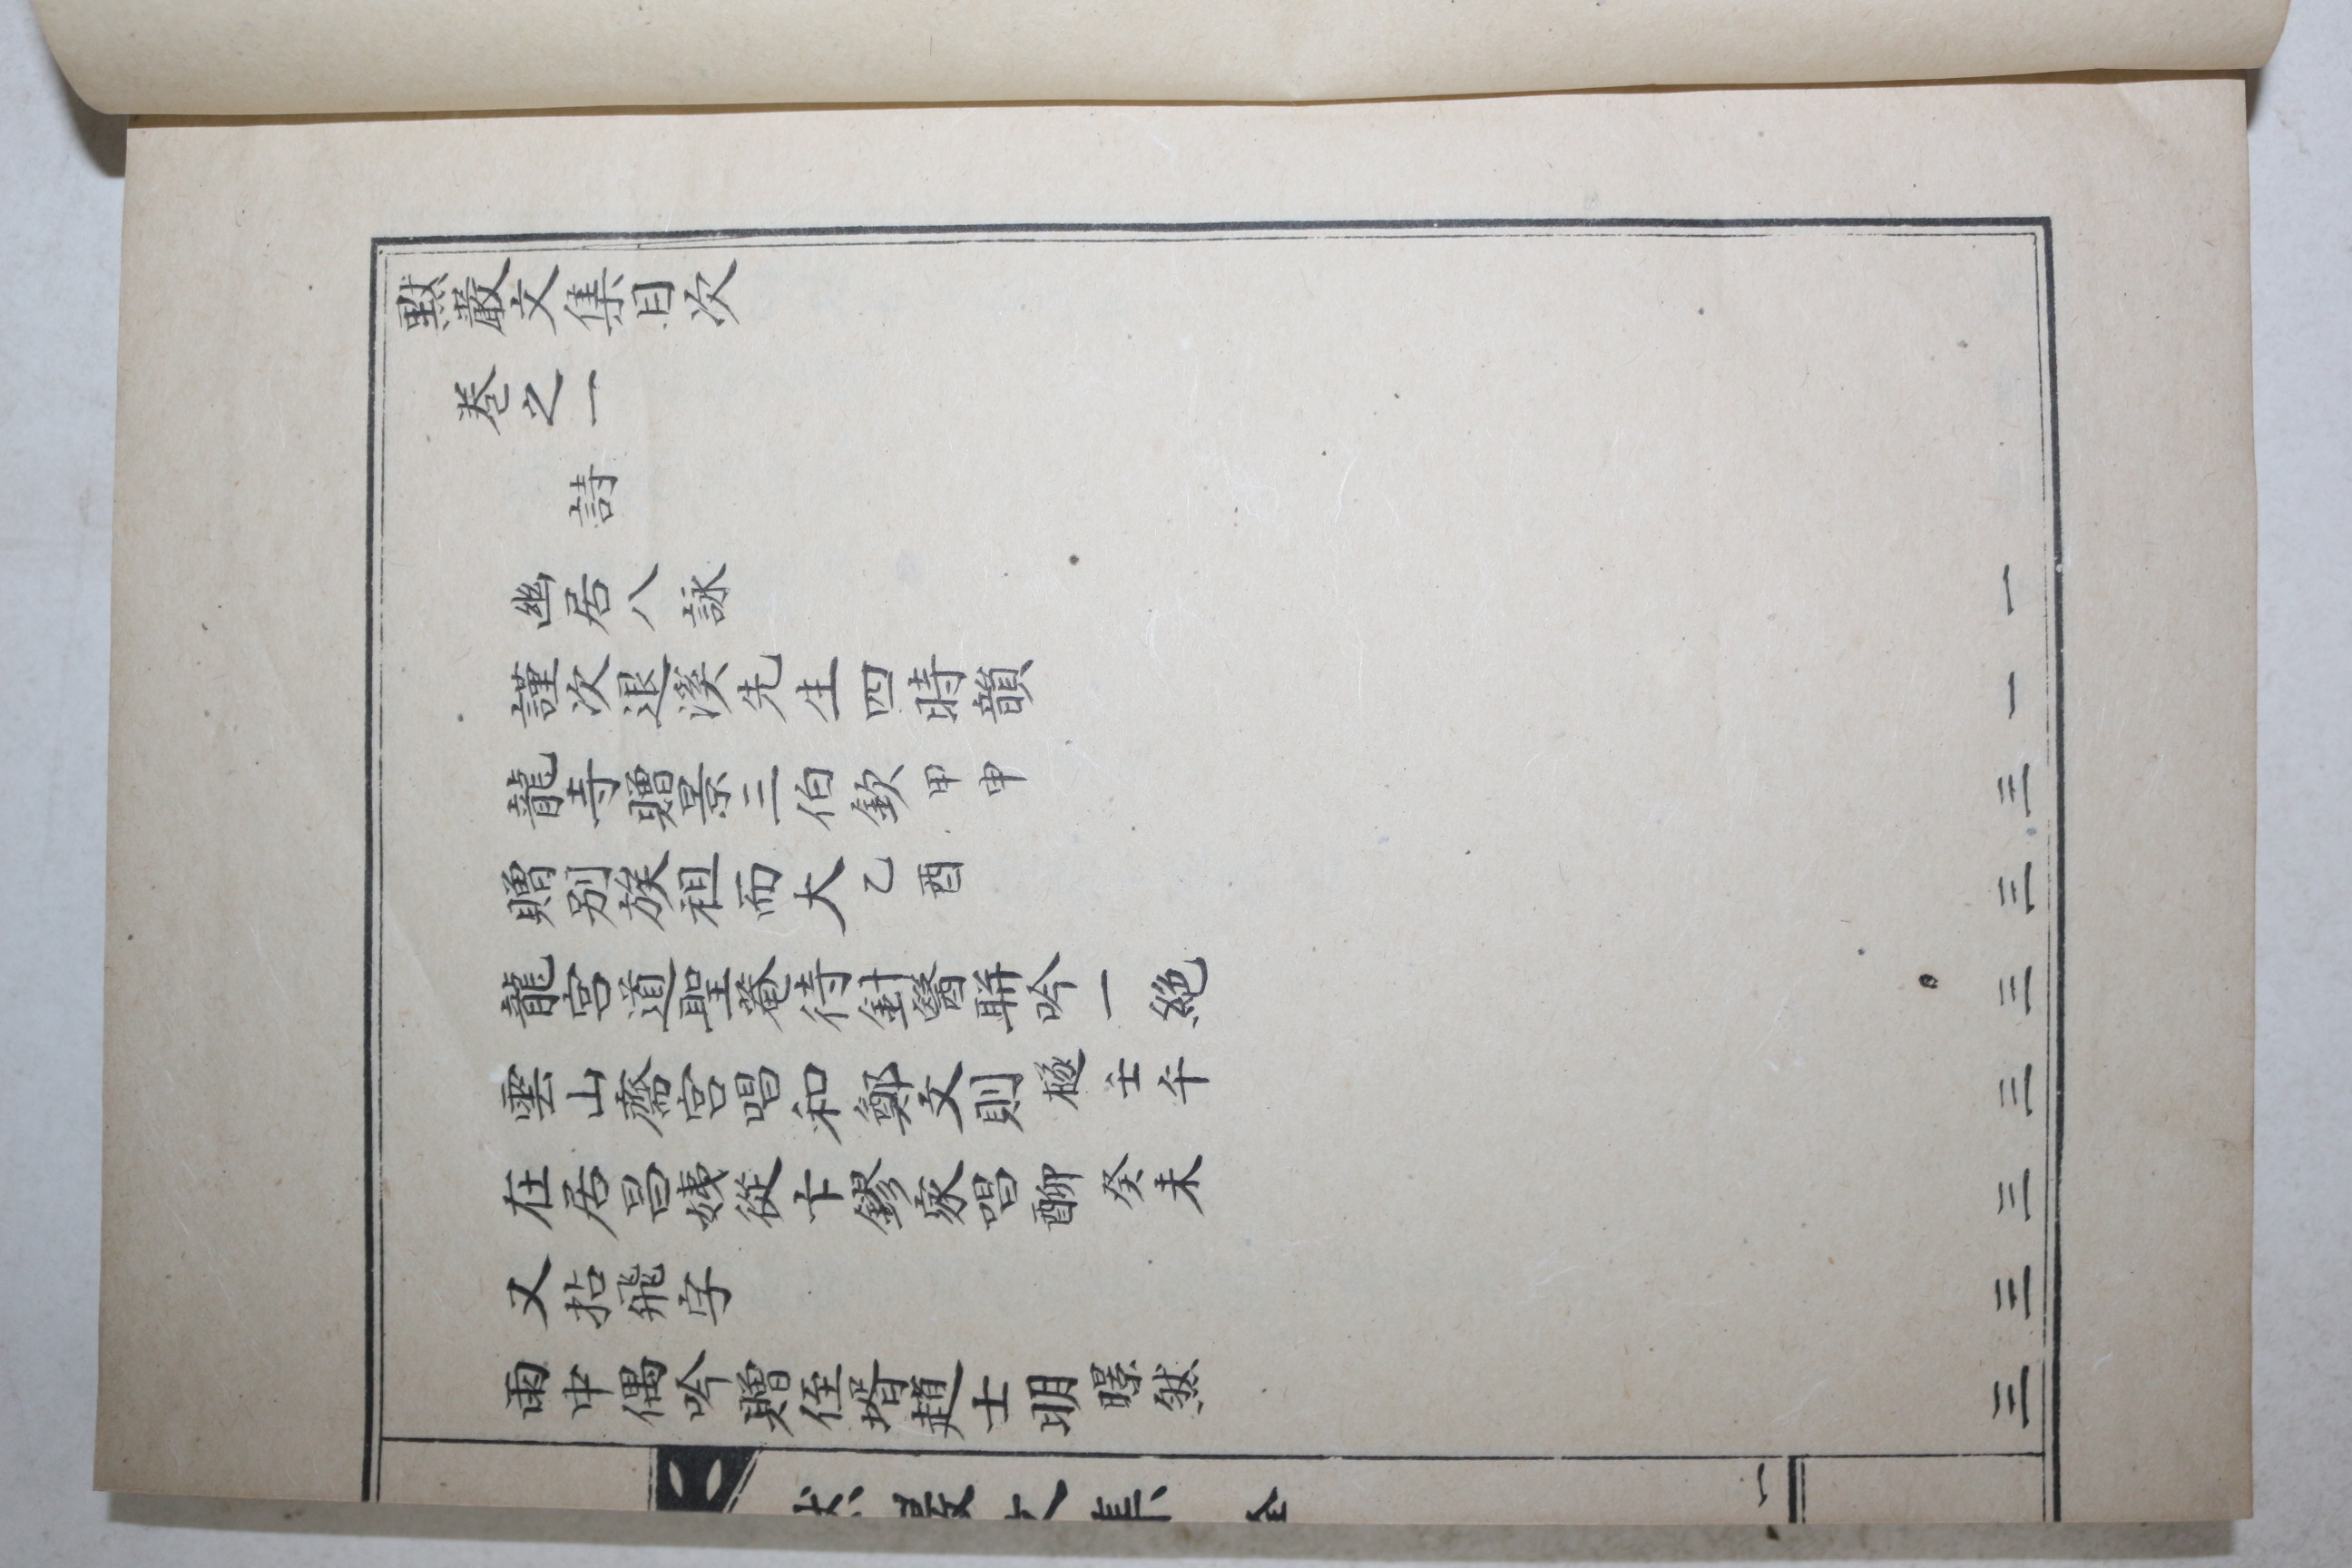 默巖文集目次
卷之一
詩
幽居八詠 一
謹次退溪先生四時韻 一
龍寺贈景三伯欽甲申 三
贈別族祖而大乙酉 三
龍宮道聖菴待針醫聯吟一絶 三
雲山齋宮唱和鄭文則樾壬午 三
在居昌姨從卞鏐家唱酬癸未 三
又拈飛字 三
雨中偶吟贈侄壻趙士明㬌然 三
默巖文集 全 一